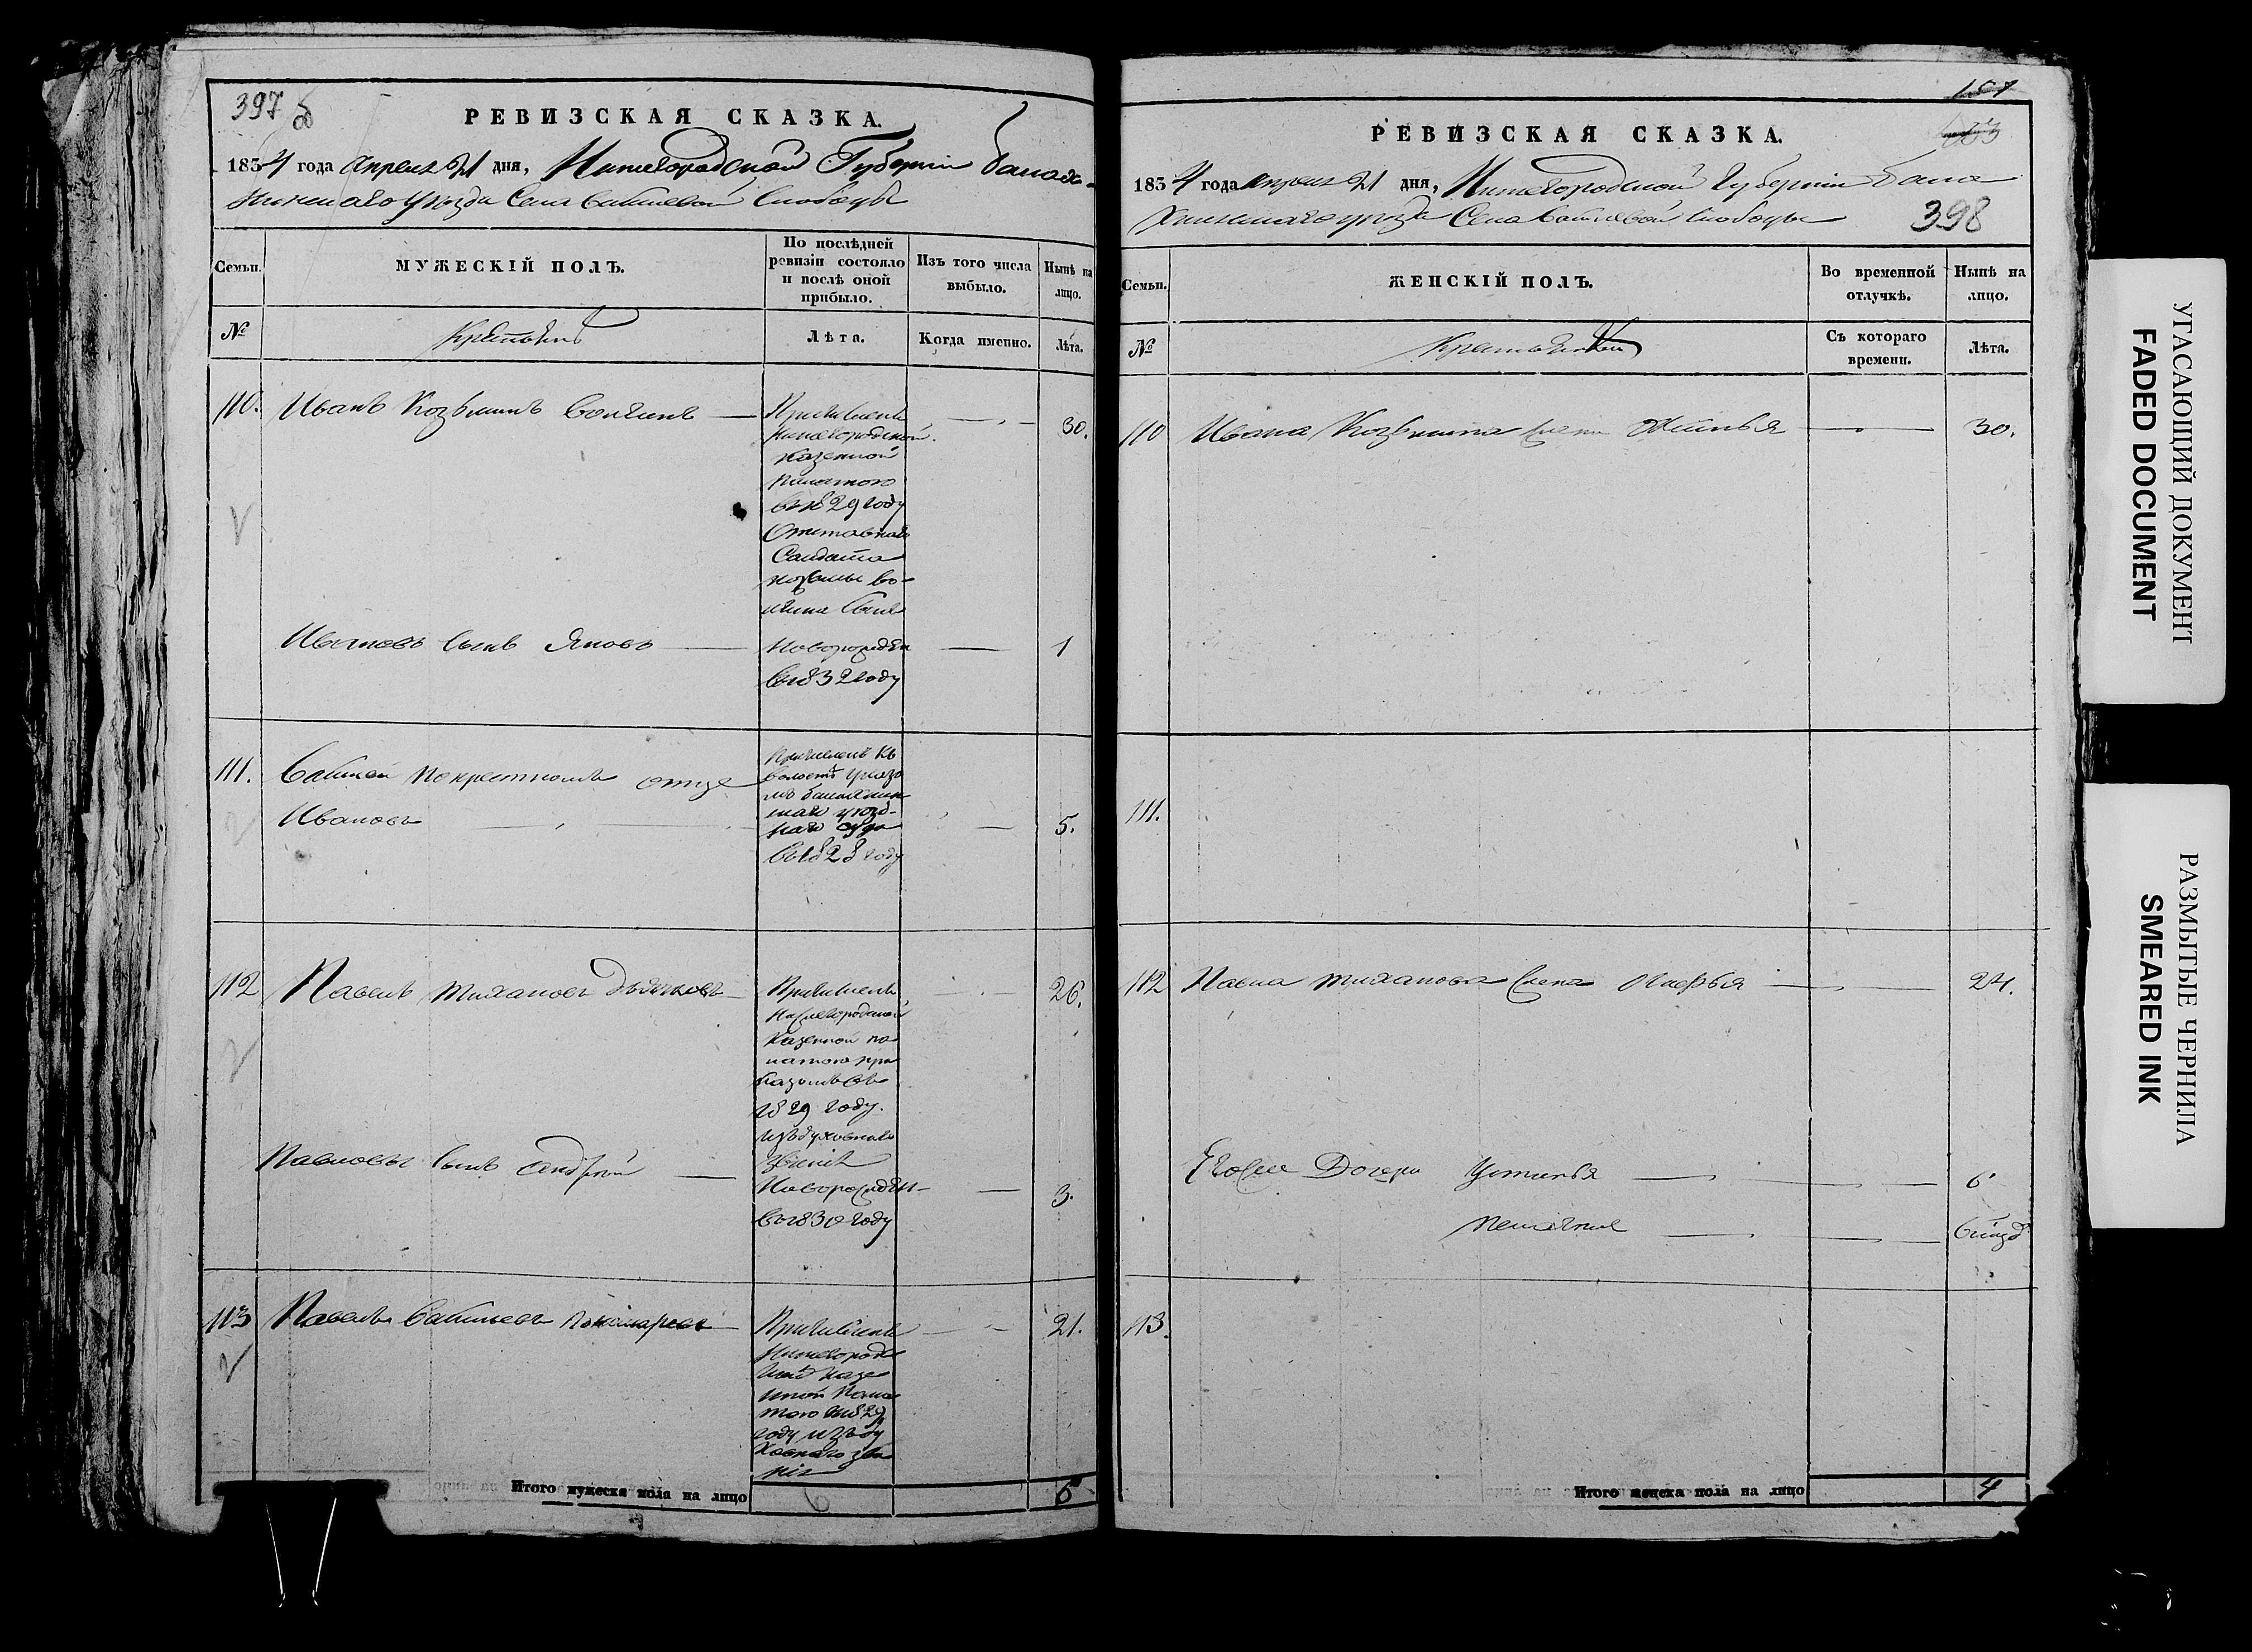 397 об
РЕВИЗСКАЯ СКАЗКА.
1834 года апреля 21 дня, Нижегородской Губернии Балах-
Села Слободы
Семьи.
МУЖЕСКІЙ ПОЛЪ.
По послѣдней ревизіи состояло и послѣ оной прибыло.
Изъ того числа выбыло.
Нынѣ на лицо.
№
Крестьянъ
Лѣта.
Когда именно.
Лѣта.
110. Иванъ Козьминъ 30.
Причисленъ
Нижегородской
Казенной
Палатою
въ 1829 году
Отставнаго
Солдата
Козьмы Во-
сынъ
Ивановъ сынъ Яковъ 1
Новорожден
въ 1832 году
111. по крестному отцу
Ивановъ 5.
Причисленъ къ
волости указо
мъ Балахнин
скаго уезд-
наго суда
въ 1828 году
112 Павелъ 26.
Причисленъ
Нижегородской
Казенной па
латою при
казомъ въ
1829 году.
изъ духовнаго
званія
Павловъ сынъ Андрей 3.
Новорожден
въ 1830 году
113 Павелъ Пономаревъ 21.
Причисленъ
Нижегород
ской казе
нной Пала
тою 1829
году изъ ду
ховнаго зва
нія
Итого мужеска пола на лицо 6 6
РЕВИЗСКАЯ СКАЗКА.
1834 года апреля 21 дня, Нижегородской Губерніи Бала
хнинскаго уезда Села Слободы 398
Семьи.
ЖЕНСКІЙ ПОЛЪ.
Во временной отлучкѣ.
Нынѣ на лицо.
№
Съ котораго времени.
Лѣта.
110 Ивана Козьмина жена 30.
111.
112 Павла жена 24.
Его же Дочери Устинья 6
Пелагия
113.
Итого женска пола на лицо 4
УГАСАЮЩИЙ ДОКУМЕНТ
FADED DOCUMENT
РАЗМЫТЫЕ ЧЕРНИЛА
SMEARED INK